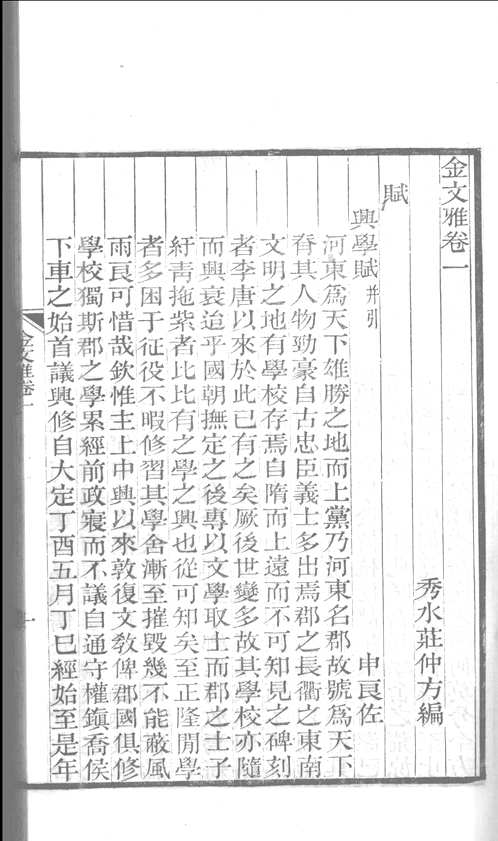 金文雅卷一
秀水莊仲方編
賦
興學賦并引
申良佐
河東爲天下雄勝之地而上黨乃河東名郡故號爲天下
脊其人物勁豪自古忠臣義士多出焉郡之長衢之東南
文明之地有學校存焉自隋而上遠而不可知見之碑刻
者李唐以來於此已有之矣厥後世變多故其學校亦隨
而興衰迨乎國朝撫定之後專以文學取士而郡之士子
紆青拖紫者比比有之學之興也從可知矣至正隆閒學
者多困于征役不暇修習其學舍漸至摧毀幾不能蔽風
雨良可惜哉欽惟主上中興以來敦復文敎俾郡國俱修
學校獨斯郡之學累經前政寢而不議自通守權鎮喬侯
下車之始首議興修自大定丁酉五月丁巳經始至是年
金文雅卷一